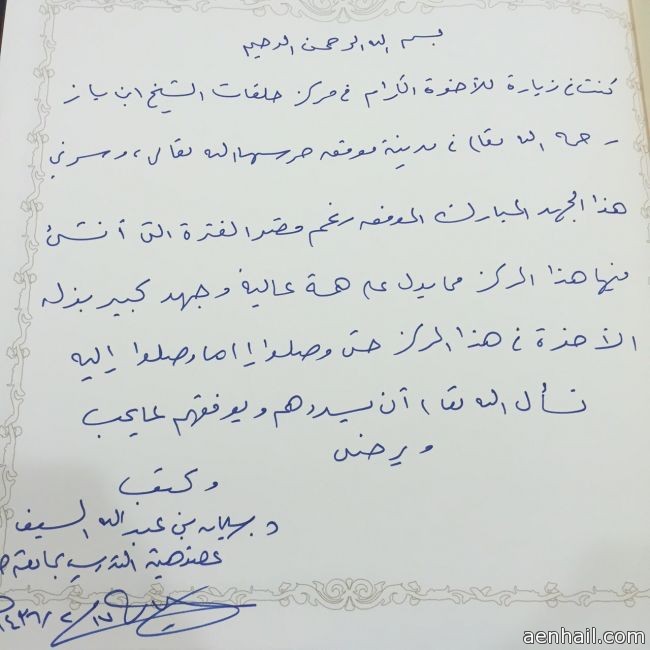 بسم الله الرحمن الرحيم
كنت في زيارة للأخوة الكرام في مركز حلقات الشيخ ابن باز
رحمه الله تعالى في مدينة موقق حرسها الله تعالى، وسرني
هذا الجهد المبارك الموفق رغم قصر الفترة التي أنشئ
فيها هذا المركز مما يدل على همة عالية وجهد كبير بذله
الأخوة في هذا المركز حتى وصلوا إلى ما وصلوا إليه
نسأل الله تعالى أن يسددهم ويوفقهم لما يحب
ويرضى
وكتب
د. سليمان بن عبدالله السيف
عضو هيئة التدريس بجامعة
١٤٣٦/٢/١٧
aenhail.com